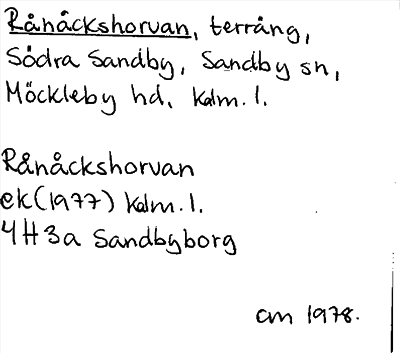 Rånåckshorvan, terräng,
Södra Sandby, Sandby sn,
Möckleby hd, Kalm. l.
Rånåckshorvan
ek (1977) Kalm. l.
4H3a Sandbyborg
cm 1978.